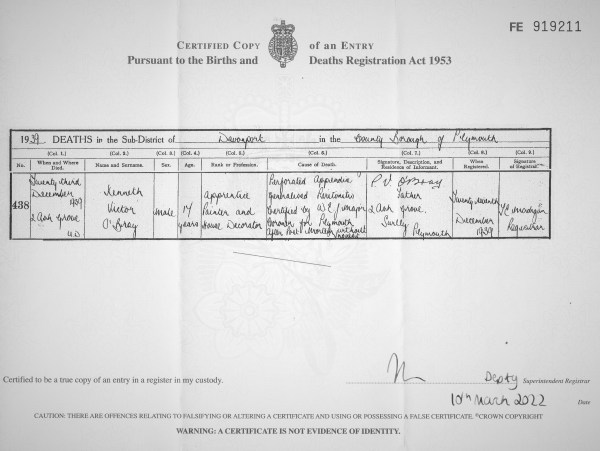 FE 919211
CERTIFIED COPY of an ENTRY
Pursuant to the Births and Deaths Registration Act 1953
1939 DEATHS in the Sub-District of Devonport in the County Borough of Plymouth
(Col. 1.) (Col. 2.) (Col. 3.) (Col. 4.) (Col. 5.) (Col. 6.) (Col. 7.) (Col. 8.) (Col. 9.)
No. When and Where Died. Name and Surname. Sex. Age. Rank or Profession. Cause of Death. Signature, Description, and Residence of Informant. When Registered. Signature of Registrar.
438
Twenty third
December
1939
2 Ash Grove
U.D.
Kenneth
Victor
O'Bray
Male
17
years
Apprentice
Painter and
House Decorator
Perforated Appendix
Generalised Peritonitis
Certified by W.E.J. Major
Coroner for Plymouth
after Post Mortem without
inquest
P V O'Bray
Father
2 Ash Grove
Plymouth
Twenty seventh
December
1939
Registrar
Certified to be a true copy of an entry in a register in my custody.
Depty Superintendent Registrar
10th March 2022 Date
CAUTION: THERE ARE OFFENCES RELATING TO FALSIFYING OR ALTERING A CERTIFICATE AND USING OR POSSESSING A FALSE CERTIFICATE. ©CROWN COPYRIGHT
WARNING: A CERTIFICATE IS NOT EVIDENCE OF IDENTITY.